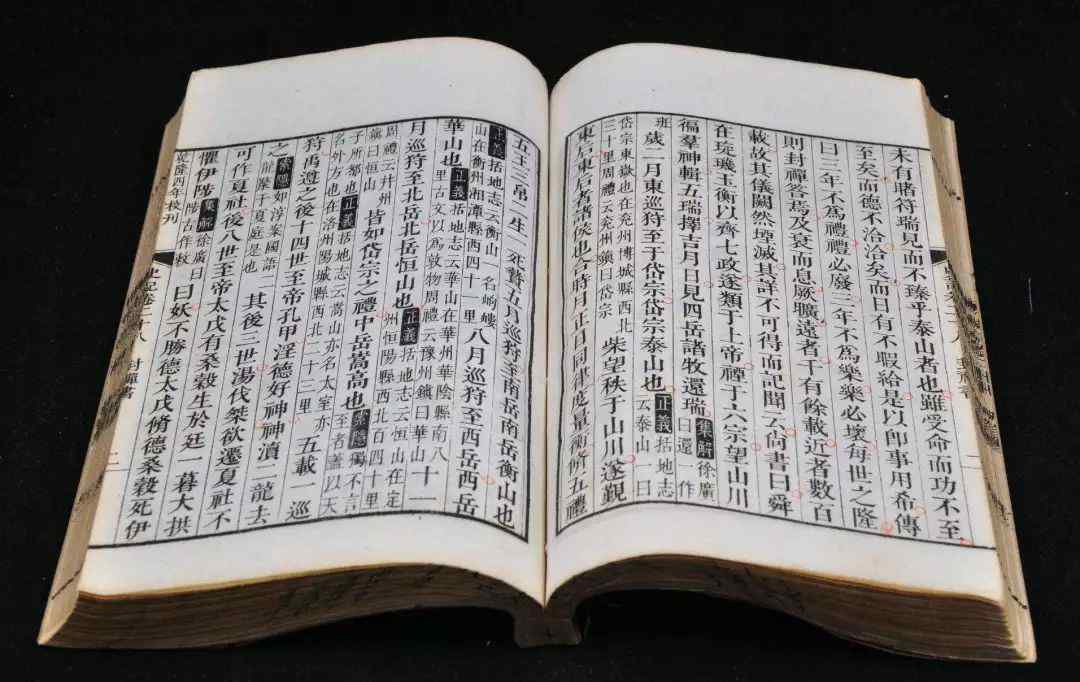 未有睹符瑞見而不臻乎泰山者也雖受命而功不至
至矣而德不洽洽矣而日有不暇給是以即事用希傳
曰三年不為禮禮必廢三年不為樂樂必壞每世之隆
則封禪答焉及衰而息厥曠遠者千有餘載近者數百
載故其儀闕然堙滅其詳不可得而記聞云尚書曰舜
在琁璣玉衡以齊七政遂類于上帝禋于六宗望山川
徧羣神輯五瑞擇吉月日見四岳諸牧還瑞集解徐廣曰還一作
班歲二月東巡狩至于岱宗岱宗泰山也正義括地志云泰山一曰
岱宗東嶽也在兗州博城縣西北三十里周禮云兗州鎮曰岱宗柴望秩于山川遂覲
東后東后者諸侯也合時月正日同律度量衡脩五禮
五玉三帛二生一死贄五月巡狩至南岳南岳衡山也
正義括地志云衡山一名岣嶁山在衡州湘潭縣西四十一里八月巡狩至西岳西岳
華山也正義括地志云華山在華州華陰縣南八里古文以為敦物周禮云豫州鎮曰華山十一
月巡狩至北岳北岳恒山也正義括地志云恒山在定州恒陽縣西北百四十里
周禮云并州鎮曰恒山皆如岱宗之禮中岳嵩高也索隱獨不言至者蓋以天
子所都也正義括地志云嵩山亦名太室亦名外方也在洛州陽城縣西北二十三里五載一巡
狩禹遵之後十四世至帝孔甲淫德好神神瀆二龍去
之索隱如淳案國語二龍漦于夏庭是也其後三世湯伐桀欲遷夏社不
可作夏社後八世至帝太戊有桑穀生於廷一暮大拱
懼伊陟集解徐廣曰陟古作敕曰妖不勝德太戊脩德桑穀死伊
乾隆四年校刊
史記卷二十八
封禪書
二